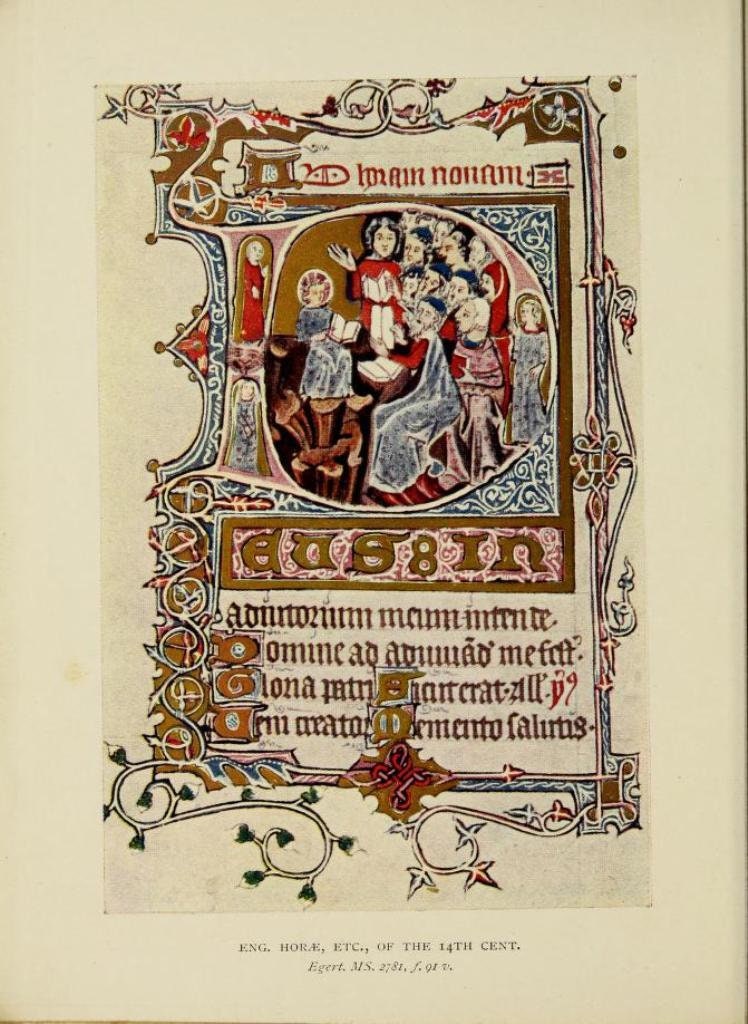 AD horam nonam.
DEUS IN
adiutorium meum intende.
Domine ad adiuuãd' me fest'.
Gloria patri Sicut erat. All'. yꝰ
Ueni creator Memento salutis.
ENG. HORÆ, ETC., OF THE 14TH CENT.
Egert. MS. 2781, f. 91 v.